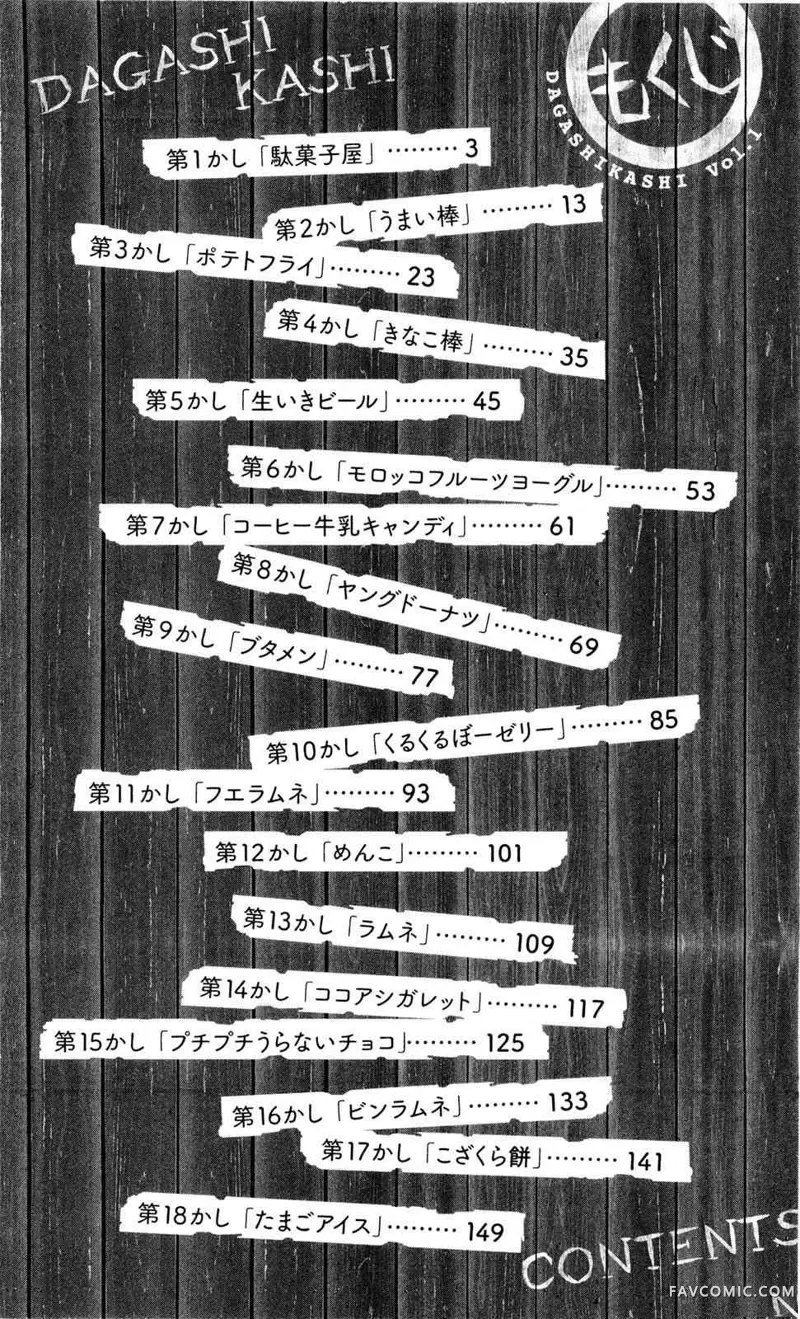 DAGASHI
KASHI
もくじ
DAGASHIKASHI Vol.1
第1かし「駄菓子屋」………3
第2かし「うまい棒」………13
第3かし「ポテトフライ」………23
第4かし「きなこ棒」………35
第5かし「生いきビール」………45
第6かし「モロッコフルーツヨーグル」………53
第7かし「コーヒー牛乳キャンディ」………61
第8かし「ヤングドーナツ」………69
第9かし「ブタメン」………77
第10かし「くるくるぼーゼリー」………85
第11かし「フエラムネ」………93
第12かし「めんこ」………101
第13かし「ラムネ」………109
第14かし「ココアシガレット」………117
第15かし「プチプチうらないチョコ」………125
第16かし「ビンラムネ」………133
第17かし「こざくら餅」………141
第18かし「たまごアイス」………149
CONTENTS
FAVCOMIC.COM